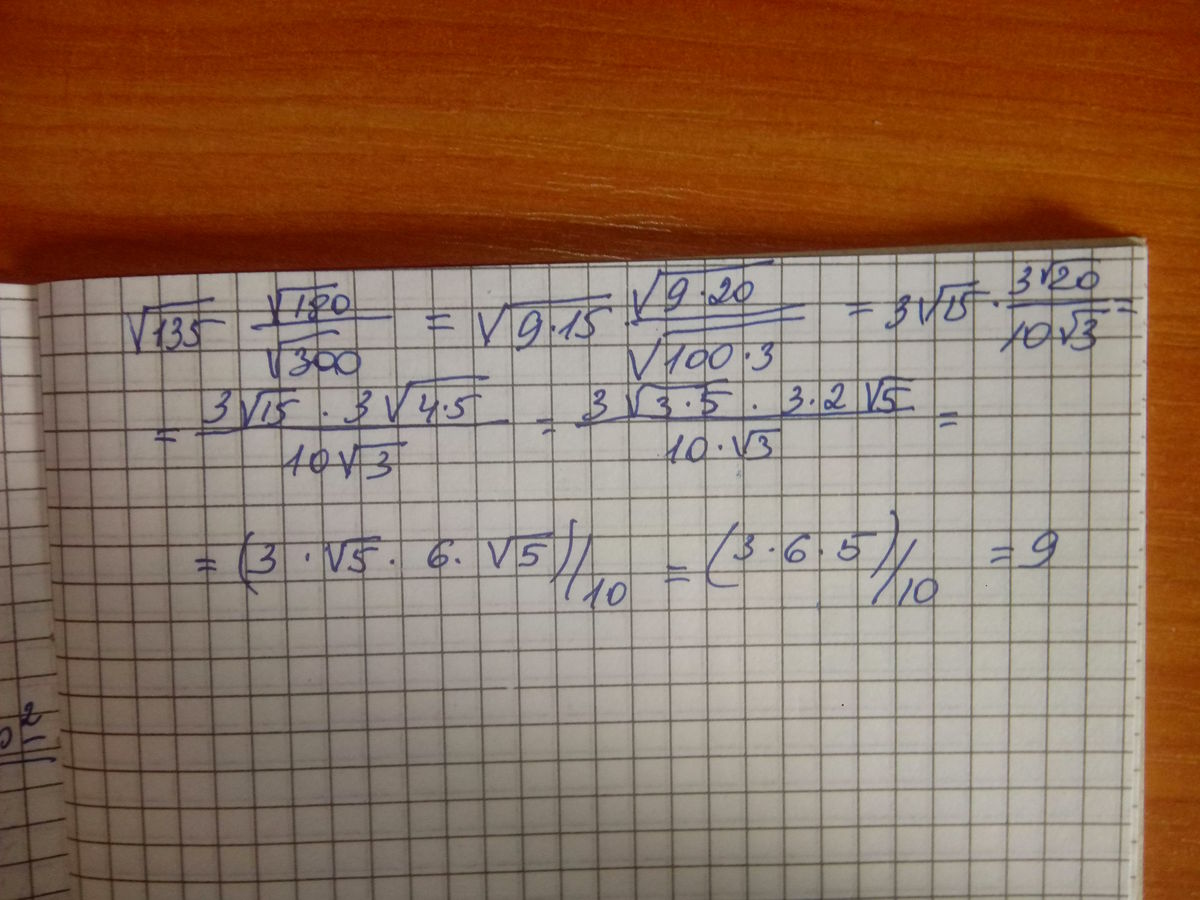 √135 √180/√300 = √(9·15) √(9·20)/√(100·3) = 3√15 · 3√20/10√3 =
= 3√15 · 3√(4·5)/10√3 = 3√(3·5) · 3·2√5/10·√3 =
= (3 · √5 · 6 · √5)/10 = (3·6·5)/10 = 9
2